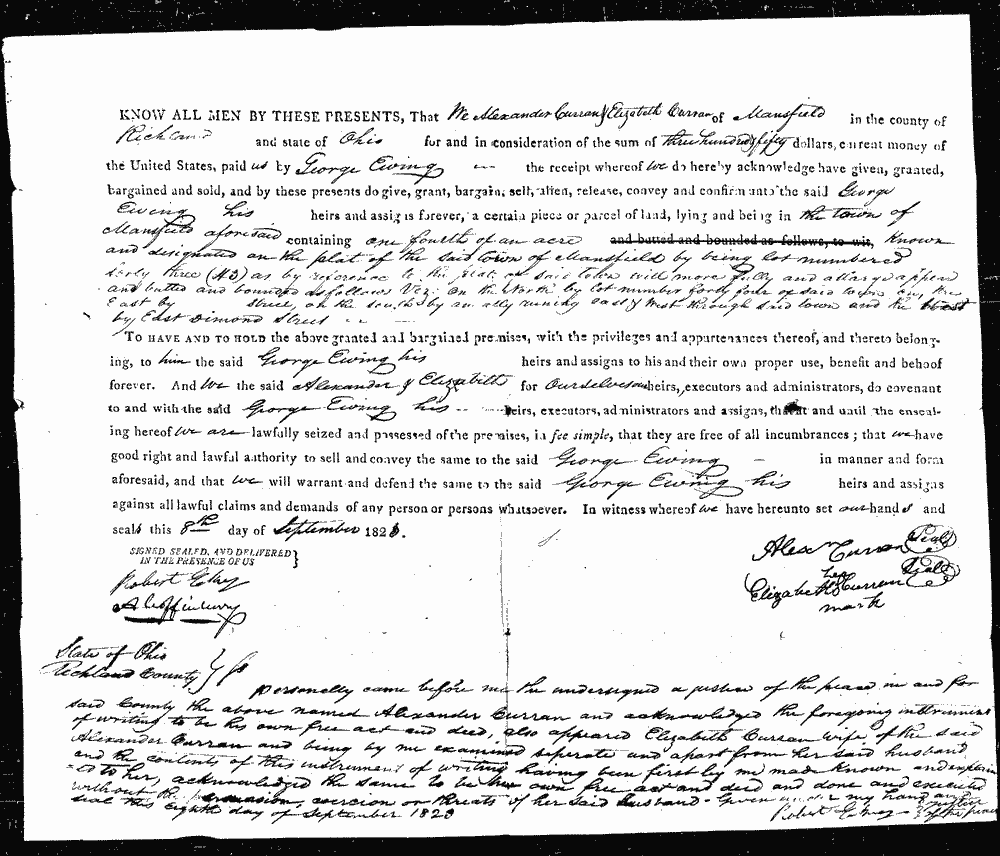 KNOW ALL MEN BY THESE PRESENTS, That We Alexander Curran & Elizabeth Curran of Mansfield in the county of
Richland and state of Ohio for and in consideration of the sum of three hundred & fifty dollars, current money of
the United States, paid us by George Ewing the receipt whereof we do hereby acknowledge have given, granted,
bargained and sold, and by these presents do give, grant, bargain, sell, alien, release, convey and confirm unto the said George
Ewing his heirs and assigns forever, a certain piece or parcel of land, lying and being in the town of
Mansfield aforesaid containing one fourth of an acre and butted and bounded as follows, to wit, Known
and designated on the plat of the said town of Mansfield by being lot numbered
forty three (43) as by reference to the plat of said town will more fully and at large appear
and butted and bounded as follows Vez: on the North by lot number forty four of said town on the
East by street, on the south by an ally runing east & west through said town and the West
by East Dimond Street
To HAVE AND TO HOLD the above granted and bargained premises, with the privileges and appurtenances thereof, and thereto belong-
ing, to him the said George Ewing his heirs and assigns to his and their own proper use, benefit and behoof
forever. And We the said Alexander & Elizabeth for Ourselves our heirs, executors and administrators, do covenant
to and with the said George Ewing his heirs, executors, administrators and assigns, that at and until the enseal-
ing hereof we are lawfully seized and possessed of the premises, in fee simple, that they are free of all incumbrances; that we have
good right and lawful authority to sell and convey the same to the said George Ewing in manner and form
aforesaid, and that we will warrant and defend the same to the said George Ewing his heirs and assigns
against all lawful claims and demands of any person or persons whatsoever. In witness whereof we have hereunto set our hands and
seals this 8th day of September 1828.
SIGNED SEALED, AND DELIVERED }
IN THE PRESENCE OF US
Alexr Curran Seal
Robert
her
Elizabeth Curran Seal
A Coffinberry
mark
State of Ohio
Richland County } ss
personelly came before me the undersigned a justice of the peace in and for
said County the above named Alexander Curran and acknowledged the foregoing instrument
of writing to be his own free act and deed, also appeared Elizabeth Curran wife of the said
Alexander Curran and being by me examined seperate and apart from her said husband
and the contents of this instrument of writing having been first by me made known and explain
=ed to her, acknowledged the same to be her own free act and deed and done and executed
without the persuasion, coercion or threats of her said husband - Given under my hand and
seal this eighth day of September 1828
Robert justice
of the peace